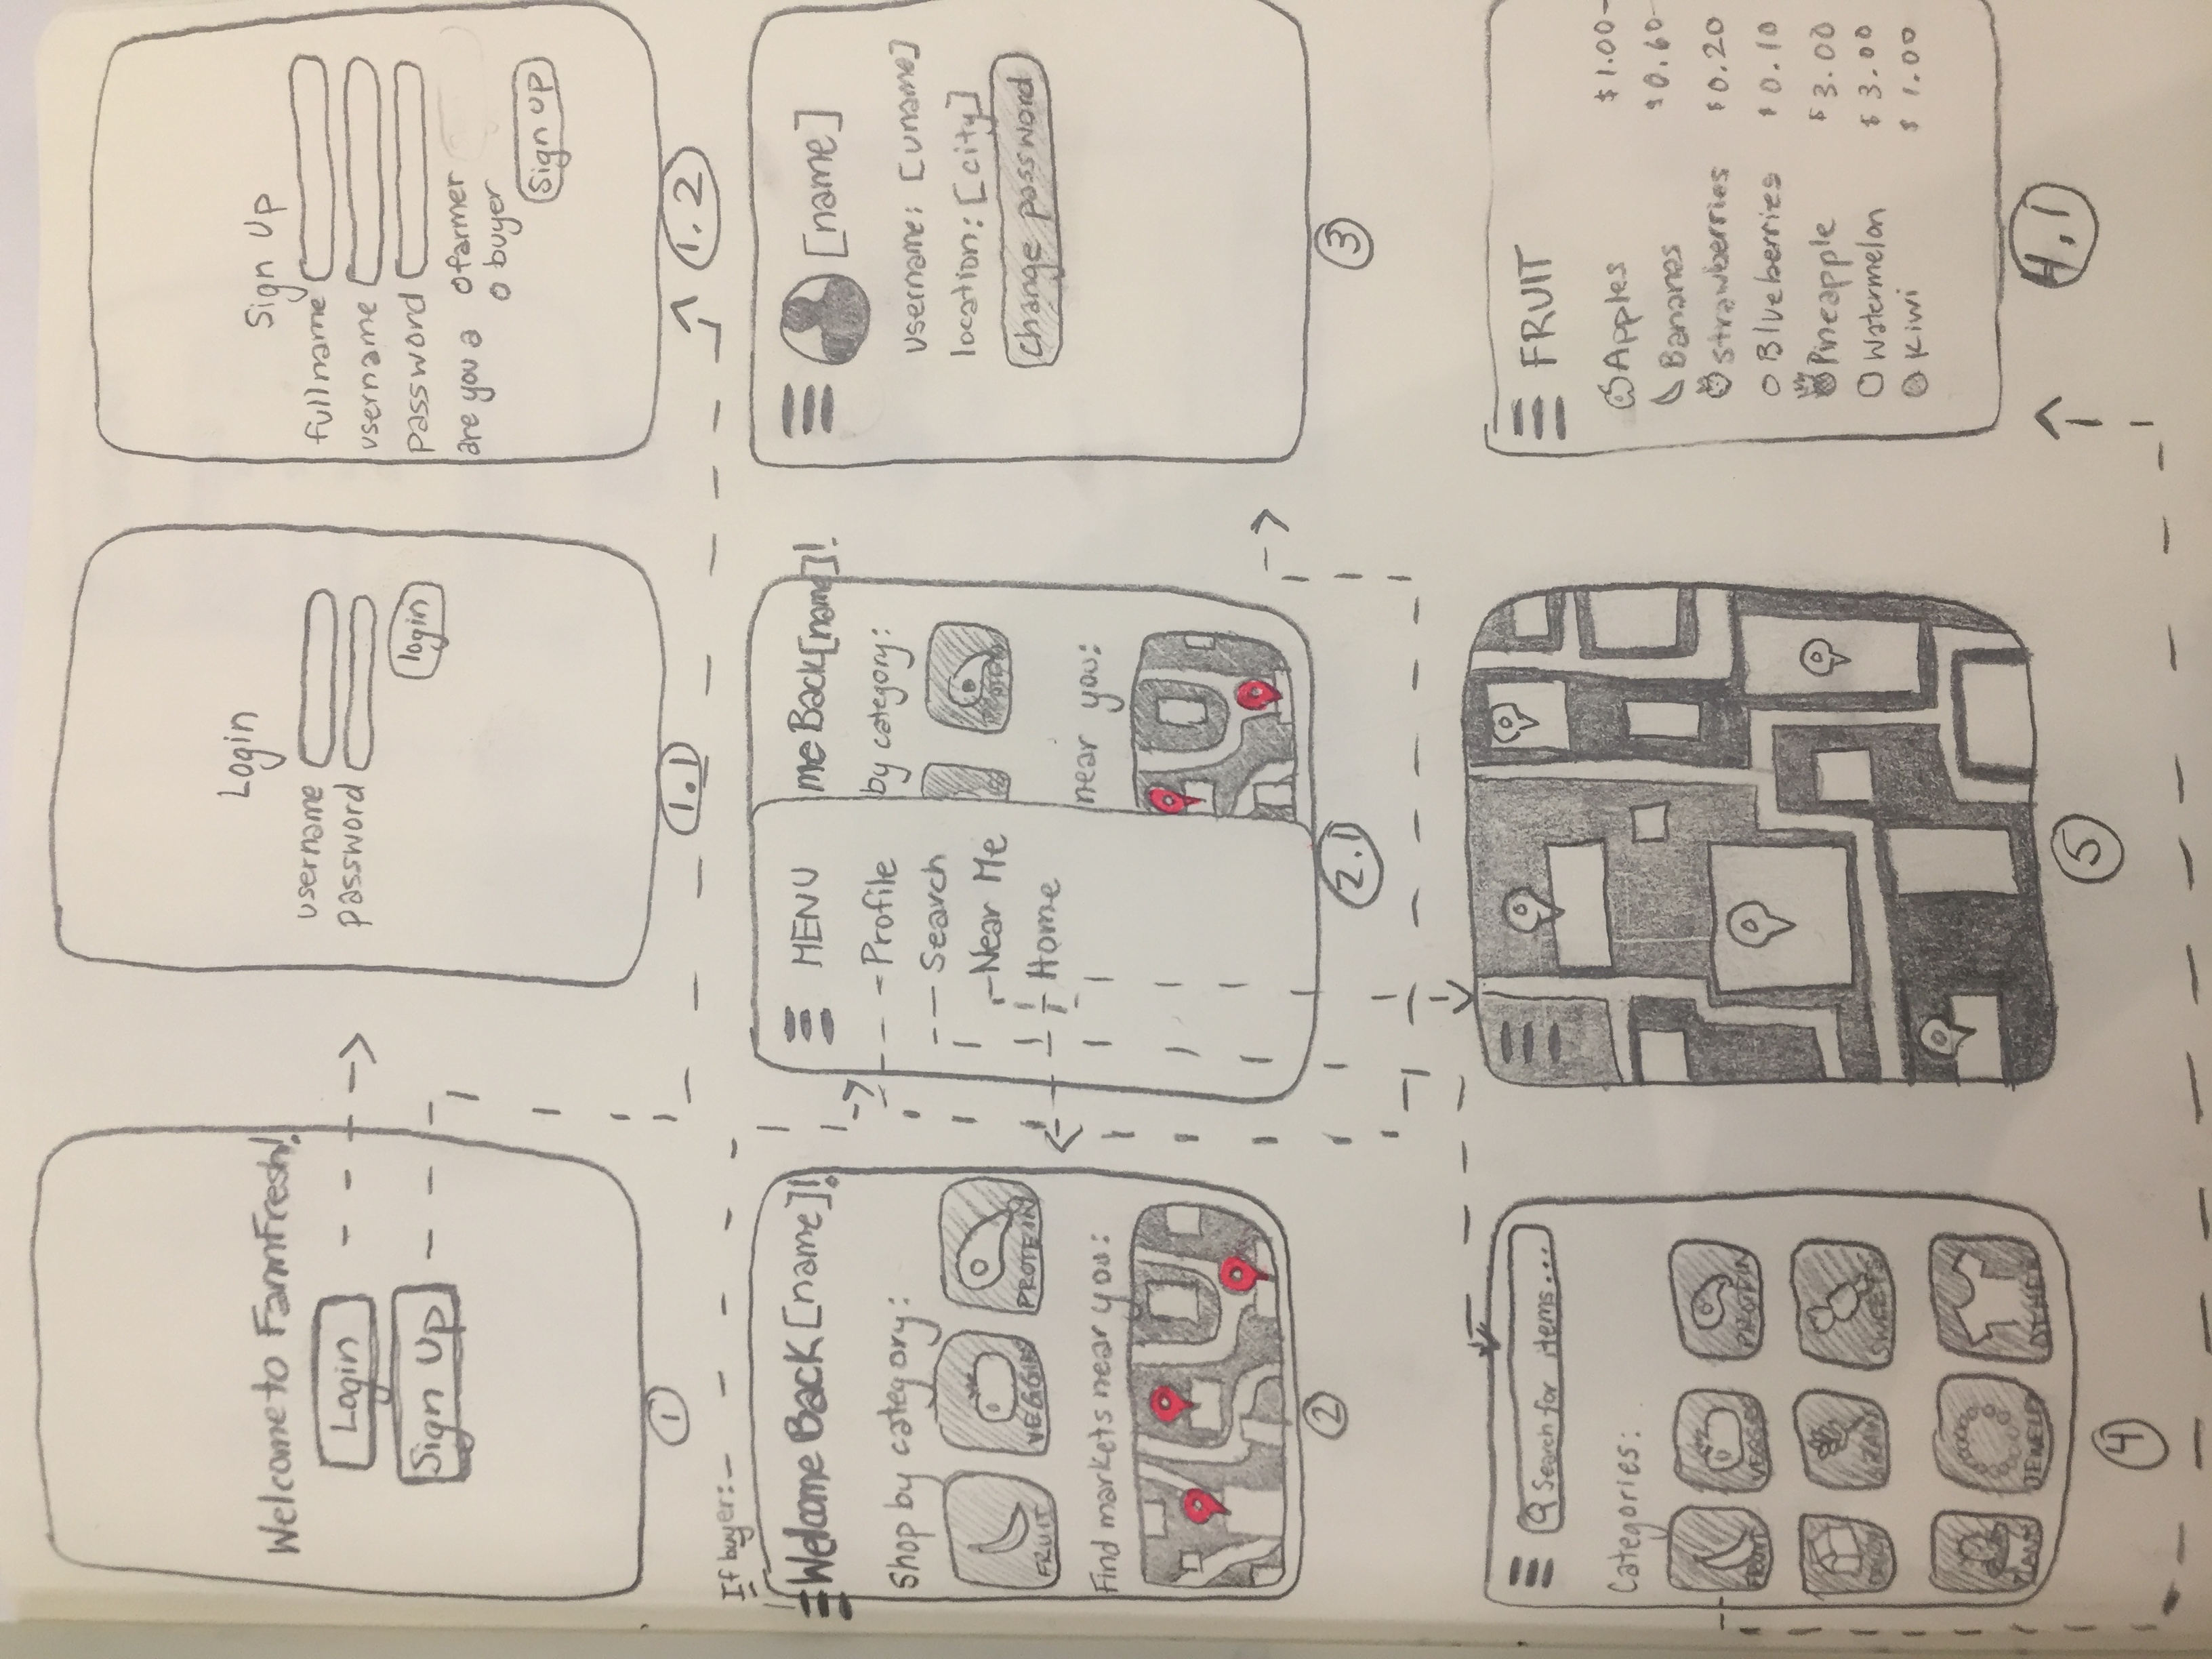 Welcome to FarmFresh!
Login
Sign Up
1
Login
username
password
login
1.1
Sign Up
fullname
username
password
are you a farmer
buyer
Sign up
1.2
If buyer:
Welcome Back [name]!
Shop by category:
FRUIT
VEGGIES
PROTEIN
Find markets near you:
2
MENU
Profile
Search
Near Me
Home
me Back [name]!
by category:
near you:
2.1
[name]
username: [uname]
location: [city]
Change password
3
Search for items...
Categories:
FRUIT
VEGGIES
PROTEIN
DAIRY
GRAIN
SWEETS
PLANTS
JEWELRY
OTHER
4
5
FRUIT
Apples $1.00
Bananas $0.60
Strawberries $0.20
Blueberries $0.10
Pineapple $3.00
Watermelon $3.00
Kiwi $1.00
4.1